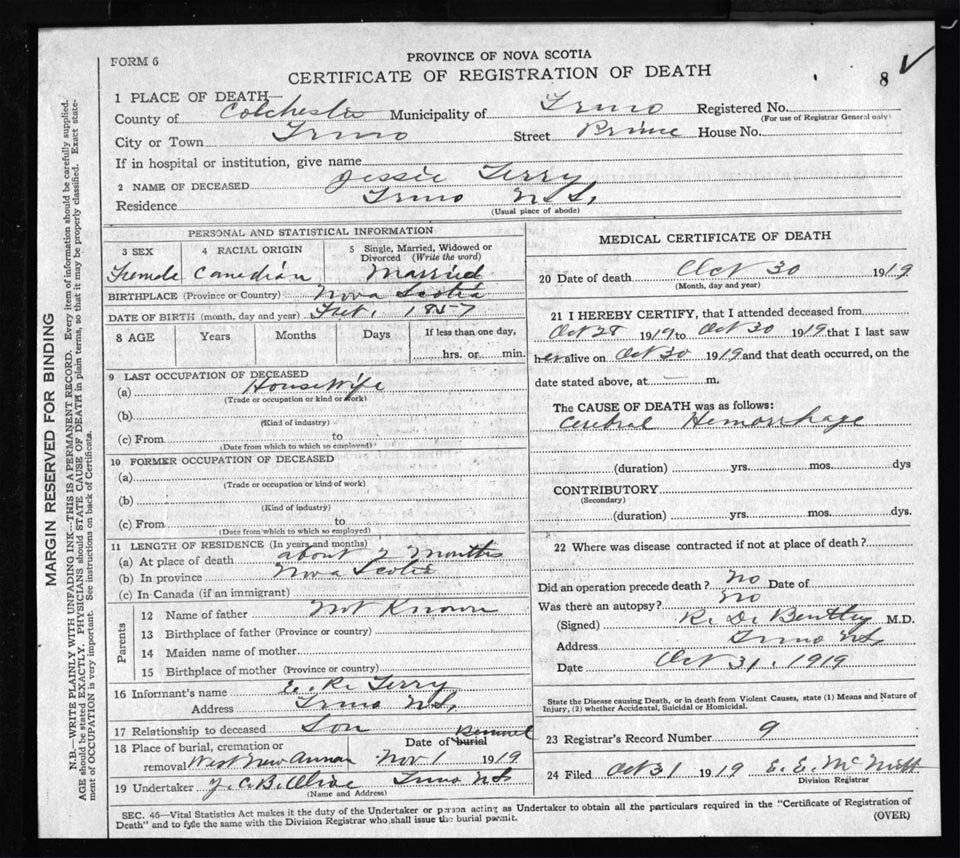 FORM 6
PROVINCE OF NOVA SCOTIA
CERTIFICATE OF REGISTRATION OF DEATH
8
1 PLACE OF DEATH—
County of Colchester Municipality of Truro Registered No.
(For use of Registrar General only)
City or Town Truro Street Prince House No.
If in hospital or institution, give name
2 NAME OF DECEASED Jessie Terry
Residence Truro N.S.
(Usual place of abode)
PERSONAL AND STATISTICAL INFORMATION
3 SEX 4 RACIAL ORIGIN 5 Single, Married, Widowed or Divorced (Write the word)
Female Canadian Married
BIRTHPLACE (Province or Country) Nova Scotia
DATE OF BIRTH (month, day and year) 1857
8 AGE Years Months Days If less than one day,
hrs. or min.
9 LAST OCCUPATION OF DECEASED
(a) Housewife
(Trade or occupation or kind or work)
(b)
(Kind of industry)
(c) From to
(Date from which to which so employed)
10 FORMER OCCUPATION OF DECEASED
(a)
(Trade or occupation or kind of work)
(b)
(Kind of industry)
(c) From to
(Date from which to which so employed)
11 LENGTH OF RESIDENCE (In years and months)
(a) At place of death about 2 Months
(b) In province Nova Scotia
(c) In Canada (if an immigrant)
Parents
12 Name of father Not Known
13 Birthplace of father (Province or country)
14 Maiden name of mother
15 Birthplace of mother (Province or country)
16 Informant's name E. R. Terry
Address Truro N.S.
17 Relationship to deceased Son
18 Place of burial, cremation or removal West New Annan
Date of burial Removal
Nov 1 1919
19 Undertaker Truro N.S.
(Name and Address)
MEDICAL CERTIFICATE OF DEATH
20 Date of death Oct 30 1919
(Month, day and year)
21 I HEREBY CERTIFY, that I attended deceased from
Oct 28 1919 to Oct 30 1919 that I last saw
her alive on Oct 30 1919 and that death occurred, on the
date stated above, at — m.
The CAUSE OF DEATH was as follows:
Cerebral Hemorrhage
(duration) yrs. mos. dys
CONTRIBUTORY
(Secondary)
(duration) yrs. mos. dys.
22 Where was disease contracted if not at place of death?
Did an operation precede death? No Date of
Was there an autopsy? No
(Signed) R. D. Bentley M.D.
Address Truro N.S.
Date Oct 31, 1919
State the Disease causing Death, or in death from Violent Causes, state (1) Means and Nature of
Injury, (2) whether Accidental, Suicidal or Homicidal.
23 Registrar's Record Number 9
24 Filed Oct 31 1919 E. E. McNutt
Division Registrar
SEC. 46—Vital Statistics Act makes it the duty of the Undertaker or person acting as Undertaker to obtain all the particulars required in the "Certificate of Registration of
Death" and to fyle the same with the Division Registrar who shall issue the burial permit.
(OVER)
MARGIN RESERVED FOR BINDING
N.B.—WRITE PLAINLY WITH UNFADING INK—THIS IS A PERMANENT RECORD. Every item of information should be carefully supplied.
AGE should be stated EXACTLY. PHYSICIANS should STATE CAUSE OF DEATH in plain terms, so that it may be properly classified. Exact statement of OCCUPATION is very important. See instructions on back of Certificate.